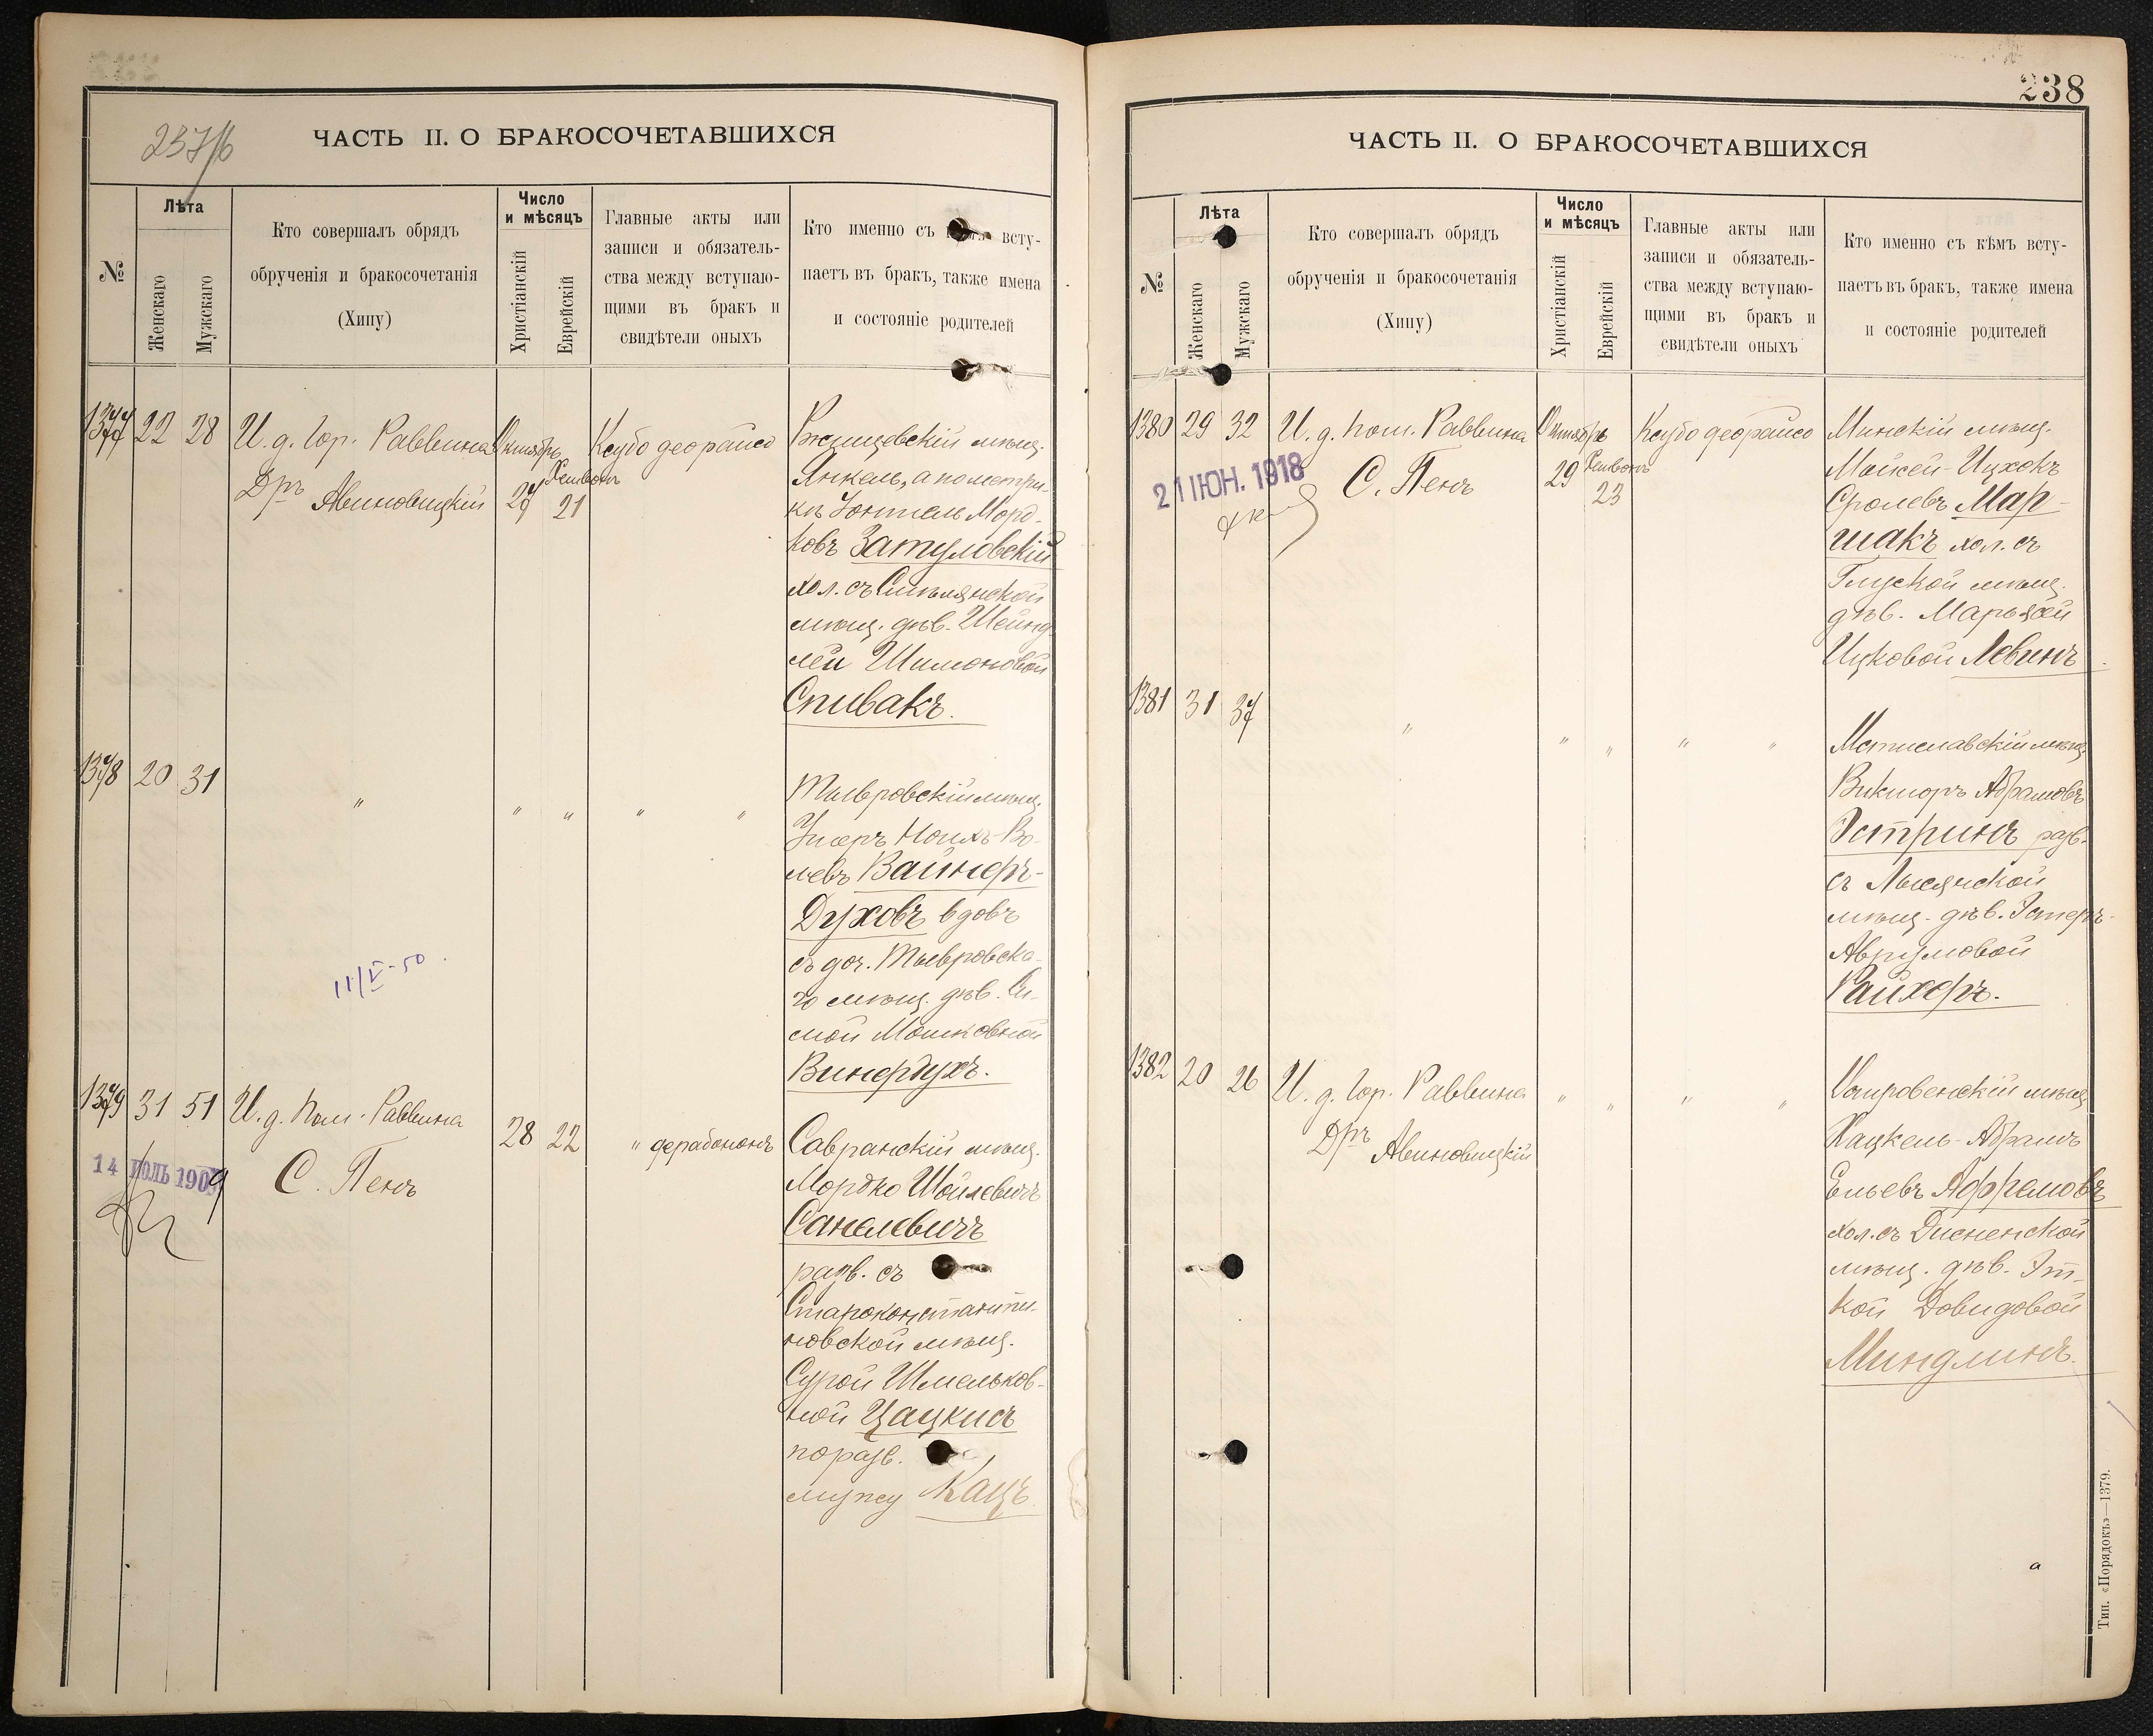 237/б
ЧАСТЬ II. О БРАКОСОЧЕТАВШИХСЯ
№
Лѣта
Женскаго
Мужскаго
Кто совершалъ обрядъ
обрученія и бракосочетанія
(Хипу)
Число
и мѣсяцъ
Христіанскій
Еврейскій
Главные акты или
записи и обязатель-
ства между вступаю-
щими въ бракъ и
свидѣтели оныхъ
Кто именно съ всту-
паетъ въ бракъ, также имена
и состояніе родителей
1377 22 28 И. д. Гор. Раввина Октябрь Ксубо деорайсо
Дръ Авиновицкій 27 Хешвонъ 21
Ржищевскій мѣщ.
Янкель, а по метри-
кѣ Іонтель Морд-
ковъ Затуловскій
хол. съ Смѣлянской
мѣщ. дѣв. Шейнд-
лей Шимоновой
Спивакъ.
1378 20 31 " " " " "
Тывровскій мѣщ.
Ушеръ Ноихъ-Во-
левъ Вайнеръ-
Духовъ вдовъ
съ доч. Тывровска-
го мѣщ. дѣв. Си-
мой Мошковной
Винердухъ.
11/V-50
1379 31 51 И. д. Пом. Раввина 28 22 " дерабононъ
С. Пенъ
14 ІЮЛЬ 1909
Савранскій мѣщ.
Мордко Шойлевичъ
Санелевичъ
разв. съ
Староконстанти-
новской мѣщ.
Сурой Шмельков-
ной Цацкисъ
по разв.
мужу Кацъ
238
ЧАСТЬ II. О БРАКОСОЧЕТАВШИХСЯ
№
Лѣта
Женскаго
Мужскаго
Кто совершалъ обрядъ
обрученія и бракосочетанія
(Хипу)
Число
и мѣсяцъ
Христіанскій
Еврейскій
Главные акты или
записи и обязатель-
ства между вступаю-
щими въ бракъ и
свидѣтели оныхъ
Кто именно съ кѣмъ всту-
паетъ въ бракъ, также имена
и состояніе родителей
1380 29 32 И. д. пом. Раввина Октябрь Ксубо деорайсо
21 ІЮН. 1918
С. Пенъ 29 Хешвонъ 23
Минскій мѣщ.
Мойсей-Ицхокъ
Сролевъ Мар-
шакъ хол. съ
Глуской мѣщ.
дѣв. Марьясей
Ицковой Левинъ
1381 31 37 " " " " "
Мстиславскій мѣщ.
Викторъ Абрамовъ
Эстринъ разв.
съ Лысянской
мѣщ. дѣв. Эстеръ-
Аврумовой
Райхеръ.
1382 20 26 И. д. Гор. Раввина " " " "
Дръ Авиновицкій
мѣщ.
Хацкель-Абрамъ
Ельевъ Аффремовъ
хол. съ Дисненской
мѣщ. дѣв. Эт-
кой Довидовой
Миндлинъ.
Тип. «Порядокъ»—1379.